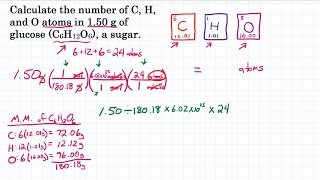 Calculate the number of C, H,
and O atoms in 1.50 g of
glucose (C₆H₁₂O₆), a sugar.
6 C 12.01
1 H 1.01
8 O 16.00
6+12+6 = 24 atoms
1.50g (1 mol / 180.18 g) (6.02×10²³ / 1 mol) (24 atoms / 1) = atoms
1.50 ÷ 180.18 × 6.02×10²³ × 24
M.M. of C₆H₁₂O₆
C: 6(12.01g) = 72.06g
H: 12(1.01g) = 12.12g
O: 6(16.00g) = 96.00g
180.18g